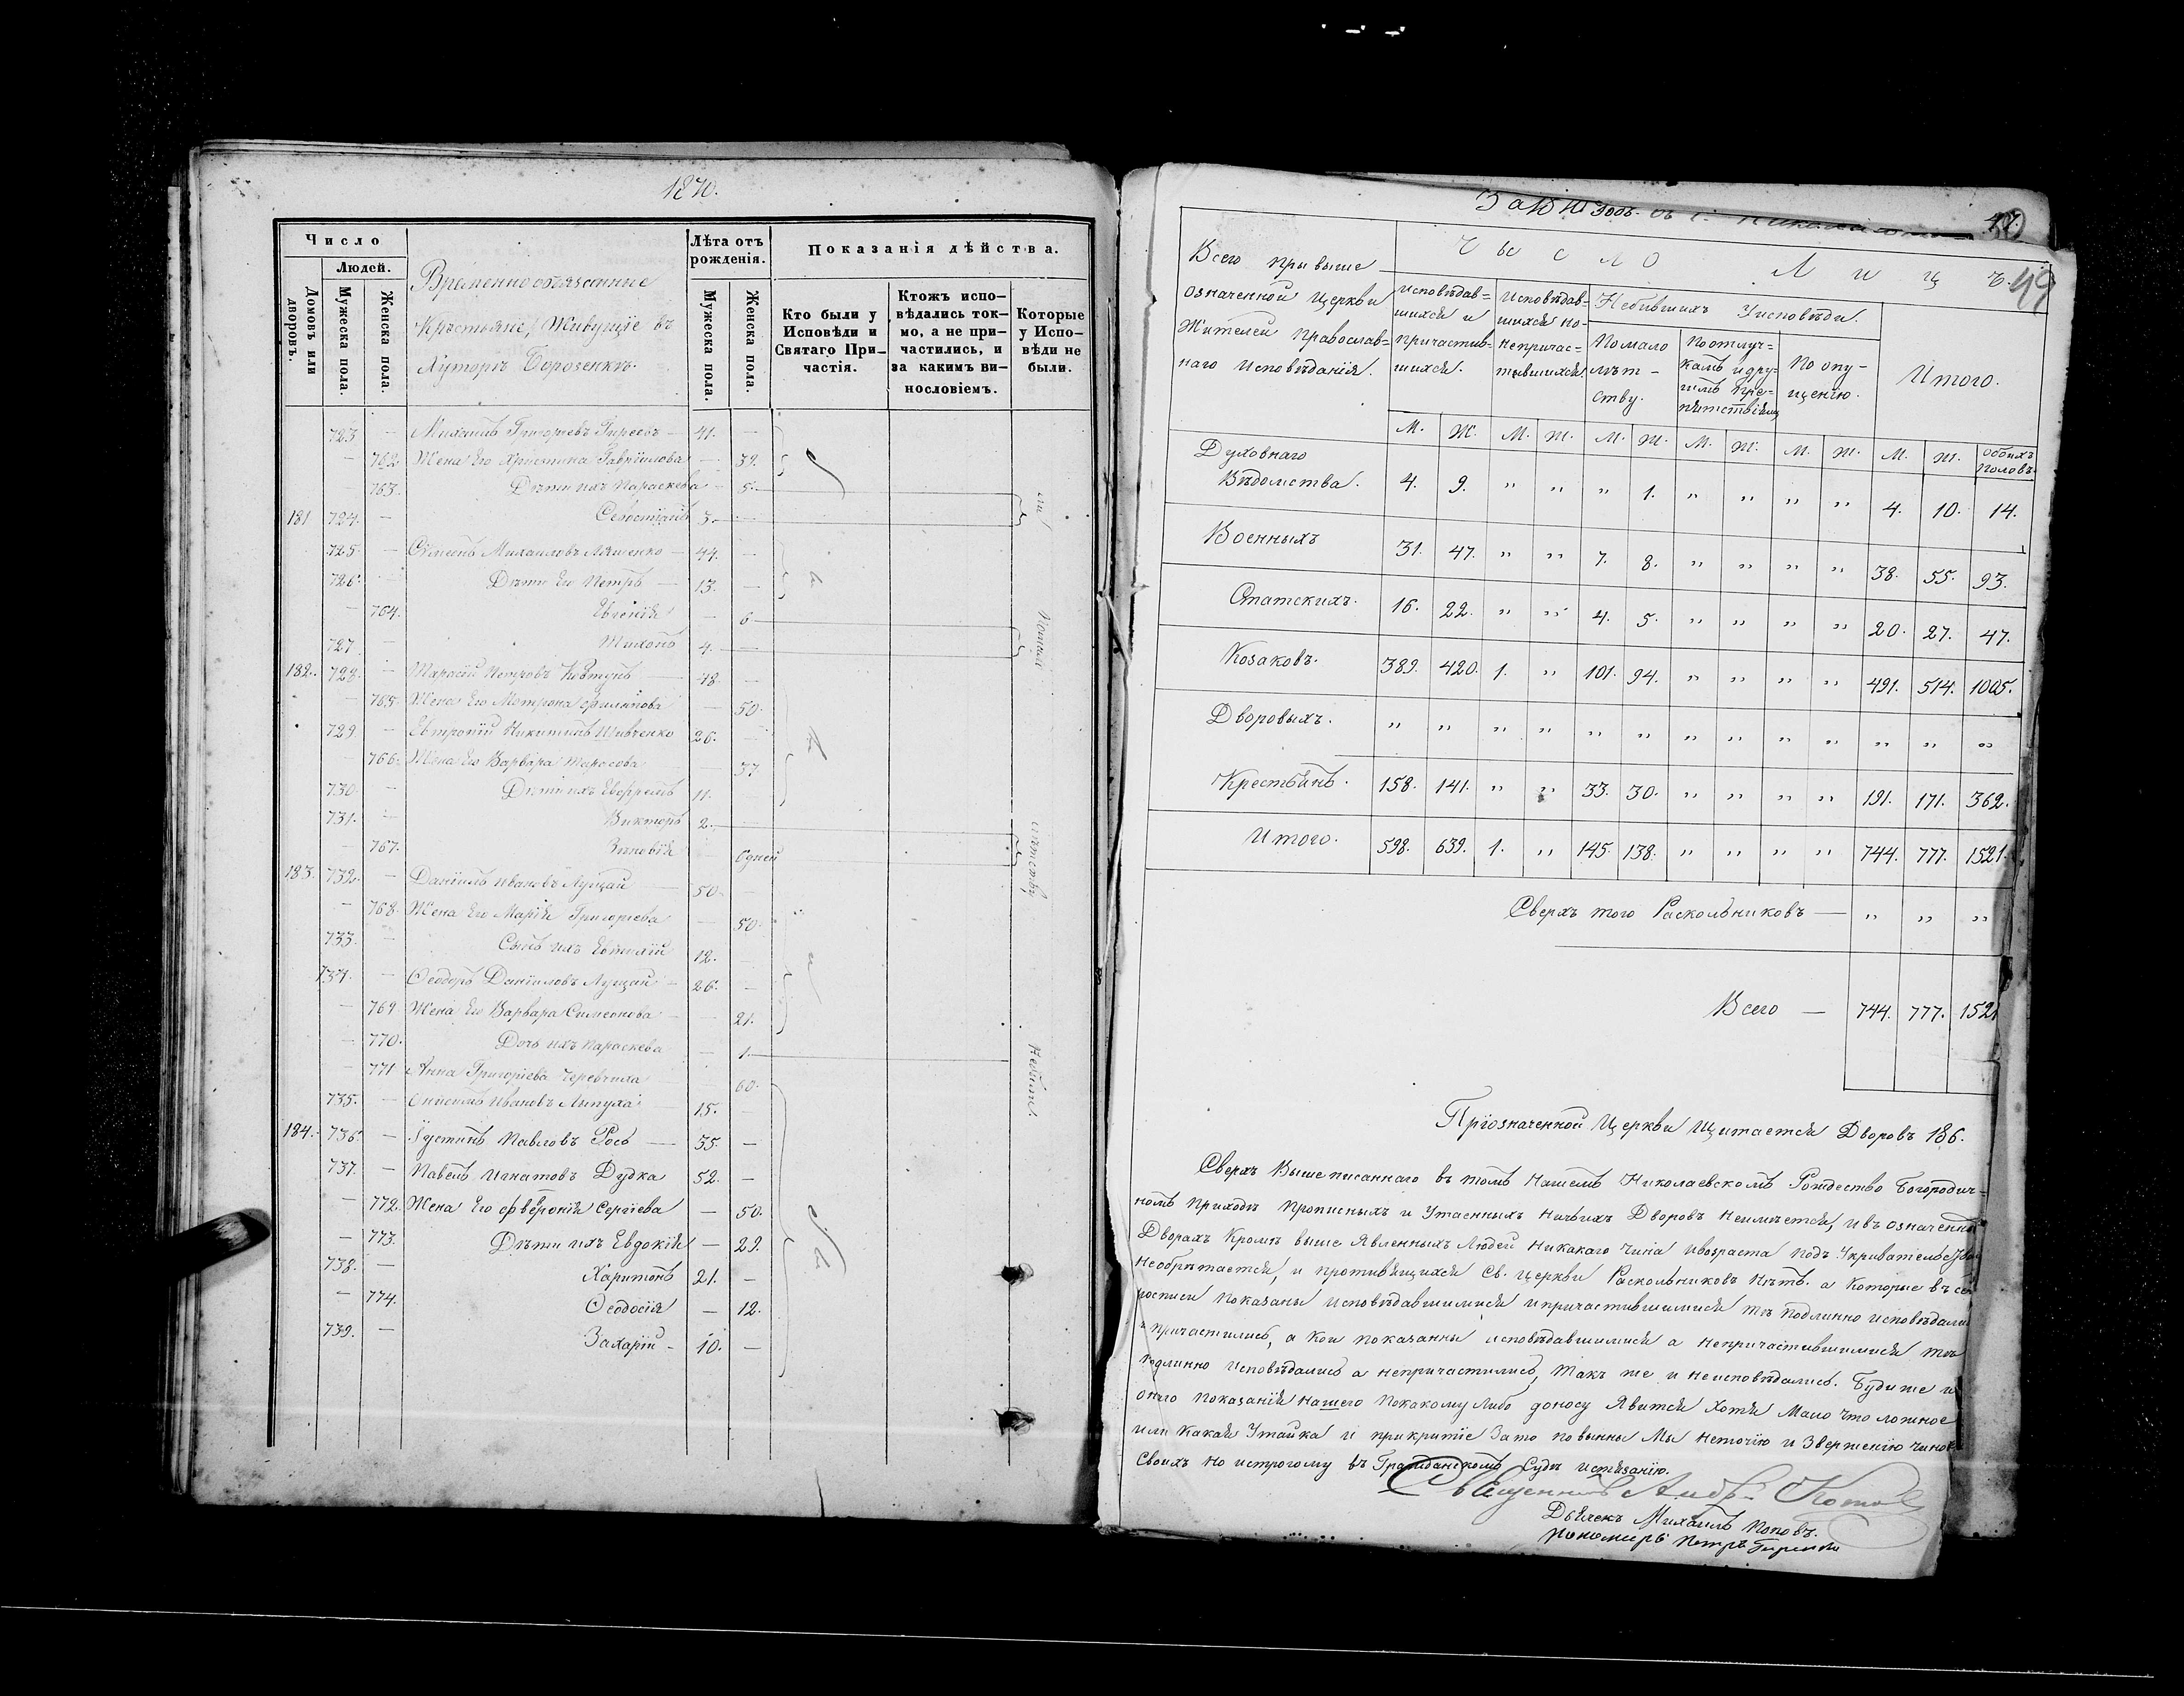 1870.
Число
Людей.
Домовъ или дворовъ.
Мужеска пола.
Женска пола.
Временно обязанные
Крестьяне, Живущіе въ
Хуторѣ Борозенкѣ.
Лѣта отъ рожденія.
Мужеска пола.
Женска пола.
Показанія дѣйства.
Кто были у Исповѣди и Святаго Причастія.
Ктожъ исповѣдались токмо, а не причастились, и за какимъ винословіемъ.
Которые у Исповѣди не были.
723 — Михаилъ Григоріевъ 41. —
— 762. Жена Его Христина Гавріилова — 39.
763. Дѣти ихъ Параскева — 5.
181 724. — Севостіанъ 3. —
725. — Михаиловъ Ляшенко — 44. —
726. — Дѣти Его Петръ — 13. —
— 764. Евгенія — 6
727 — Тихонъ 4. —
182. 728. — Тарасій Петровъ Ковтунъ 48. —
— 765. Жена Его Мотрона Филипова — 50.
729 — Евтропій Никитинъ Шевченко 26. —
— 766. Жена Его Варвара Тарасова 37
730. — Дѣти ихъ Евфремъ 11.
731. — Викторъ 2. —
— 767. Зѣновія 6 дней
183. 732. — Даніилъ Ивановъ Луцай 50. —
— 768. Жена Его Марія Григоріева — 50.
733. — Сынъ ихъ Евтихій 12. —
734. — Ѳеодоръ Даніиловъ Луцай — 26. —
— 769 Жена Его Варвара Симеонова — 21.
— 770. Дочь ихъ Параскева — 1.
— 771 Анна Григоріева 60.
735. — Онисимъ Ивановъ Липуха 15. —
184. 736. — Іустинъ Павловъ Рось — 35. —
737. — Павелъ Игнатовъ Дудка 52. —
— 772. Жена Его Февронія Сергіева — 50.
— 773. Дѣти ихъ Евдокія — 29.
738. — Харитонъ 21. —
— 774. Ѳеодосія — 12.
739. — Захарій — 10. —
Небыли.
49
Всего при выше
означенной Церкви
Жителей Православ=
наго Исповѣданія.
Число Лицъ.
Исповѣдав=
шихся и
причастив=
шихся.
Исповѣдав=
шихся но
непричас=
тившихся.
Небывшихъ Уисповѣди.
По мало
лѣт —
ству.
По отлуч=
камъ и дру=
гимъ пре=
пятствіямъ
По опу —
щенію.
Итого.
М. Ж. М. Ж. М. Ж. М. Ж. М. Ж. М. Ж. Обоихъ половъ.
Духовнаго
Вѣдомства. 4. 9. „ „ „ 1. „ „ „ „ 4. 10. 14.
Военныхъ 31. 47. „ „ 7. 8. „ „ „ „ 38. 55. 93.
Статскихъ. 16. 22. „ „ 4. 5. „ „ „ „ 20. 27. 47.
Козаковъ. 389. 420. 1. „ 101. 94. „ „ „ „ 491. 514. 1005.
Дворовыхъ. „ „ „ „ „ „ „ „ „ „ „ „ „
Крестьянъ. 158. 141. „ „ 33. 30. „ „ „ „ 191. 171. 362.
Итого. 598. 639. 1. „ 145. 138. „ „ „ „ 744. 777. 1521.
Сверхъ того Раскольниковъ — „ „ „
Всего — 744. 777. 1521
Приозначенной Церкви Щитается Дворовъ 186.
Сверхъ Вышеписаннаго въ томъ Нашемъ Николаевскомъ Рождество Богородич=
номъ Приходѣ прописныхъ и Утаенныхъ Ничьихъ Дворовъ Неимѣется, ивъ означенныхъ
Дворахъ Кромѣ выше Явленныхъ Людей Никакаго Чина ивозраста подъ Укривательствомъ
Необрѣтается, и противящихся Св. Церкви Раскольниковъ Нѣтъ. а Которие въ сей
росписи показаны исповѣдавшимися ипричастившимися тѣ подлинно исповѣдали
и причастились, а кои показанны исповѣдавшимися а непричастившимися тѣ
подлинно исповѣдались а непричастились, такъ же и неисповѣдались. Будиже и
онаго показанія нашего покакому либо доносу Явится хотя Мало что ложное
или какая Утайка и прикритіе Зато повинны Мы неточію и Звержению чиновъ
Своихъ но истрогому въ Гражданскомъ Судѣ истязанію.
Священникъ
Дьячекъ Михаилъ Поповъ.
Пономарь Петръ